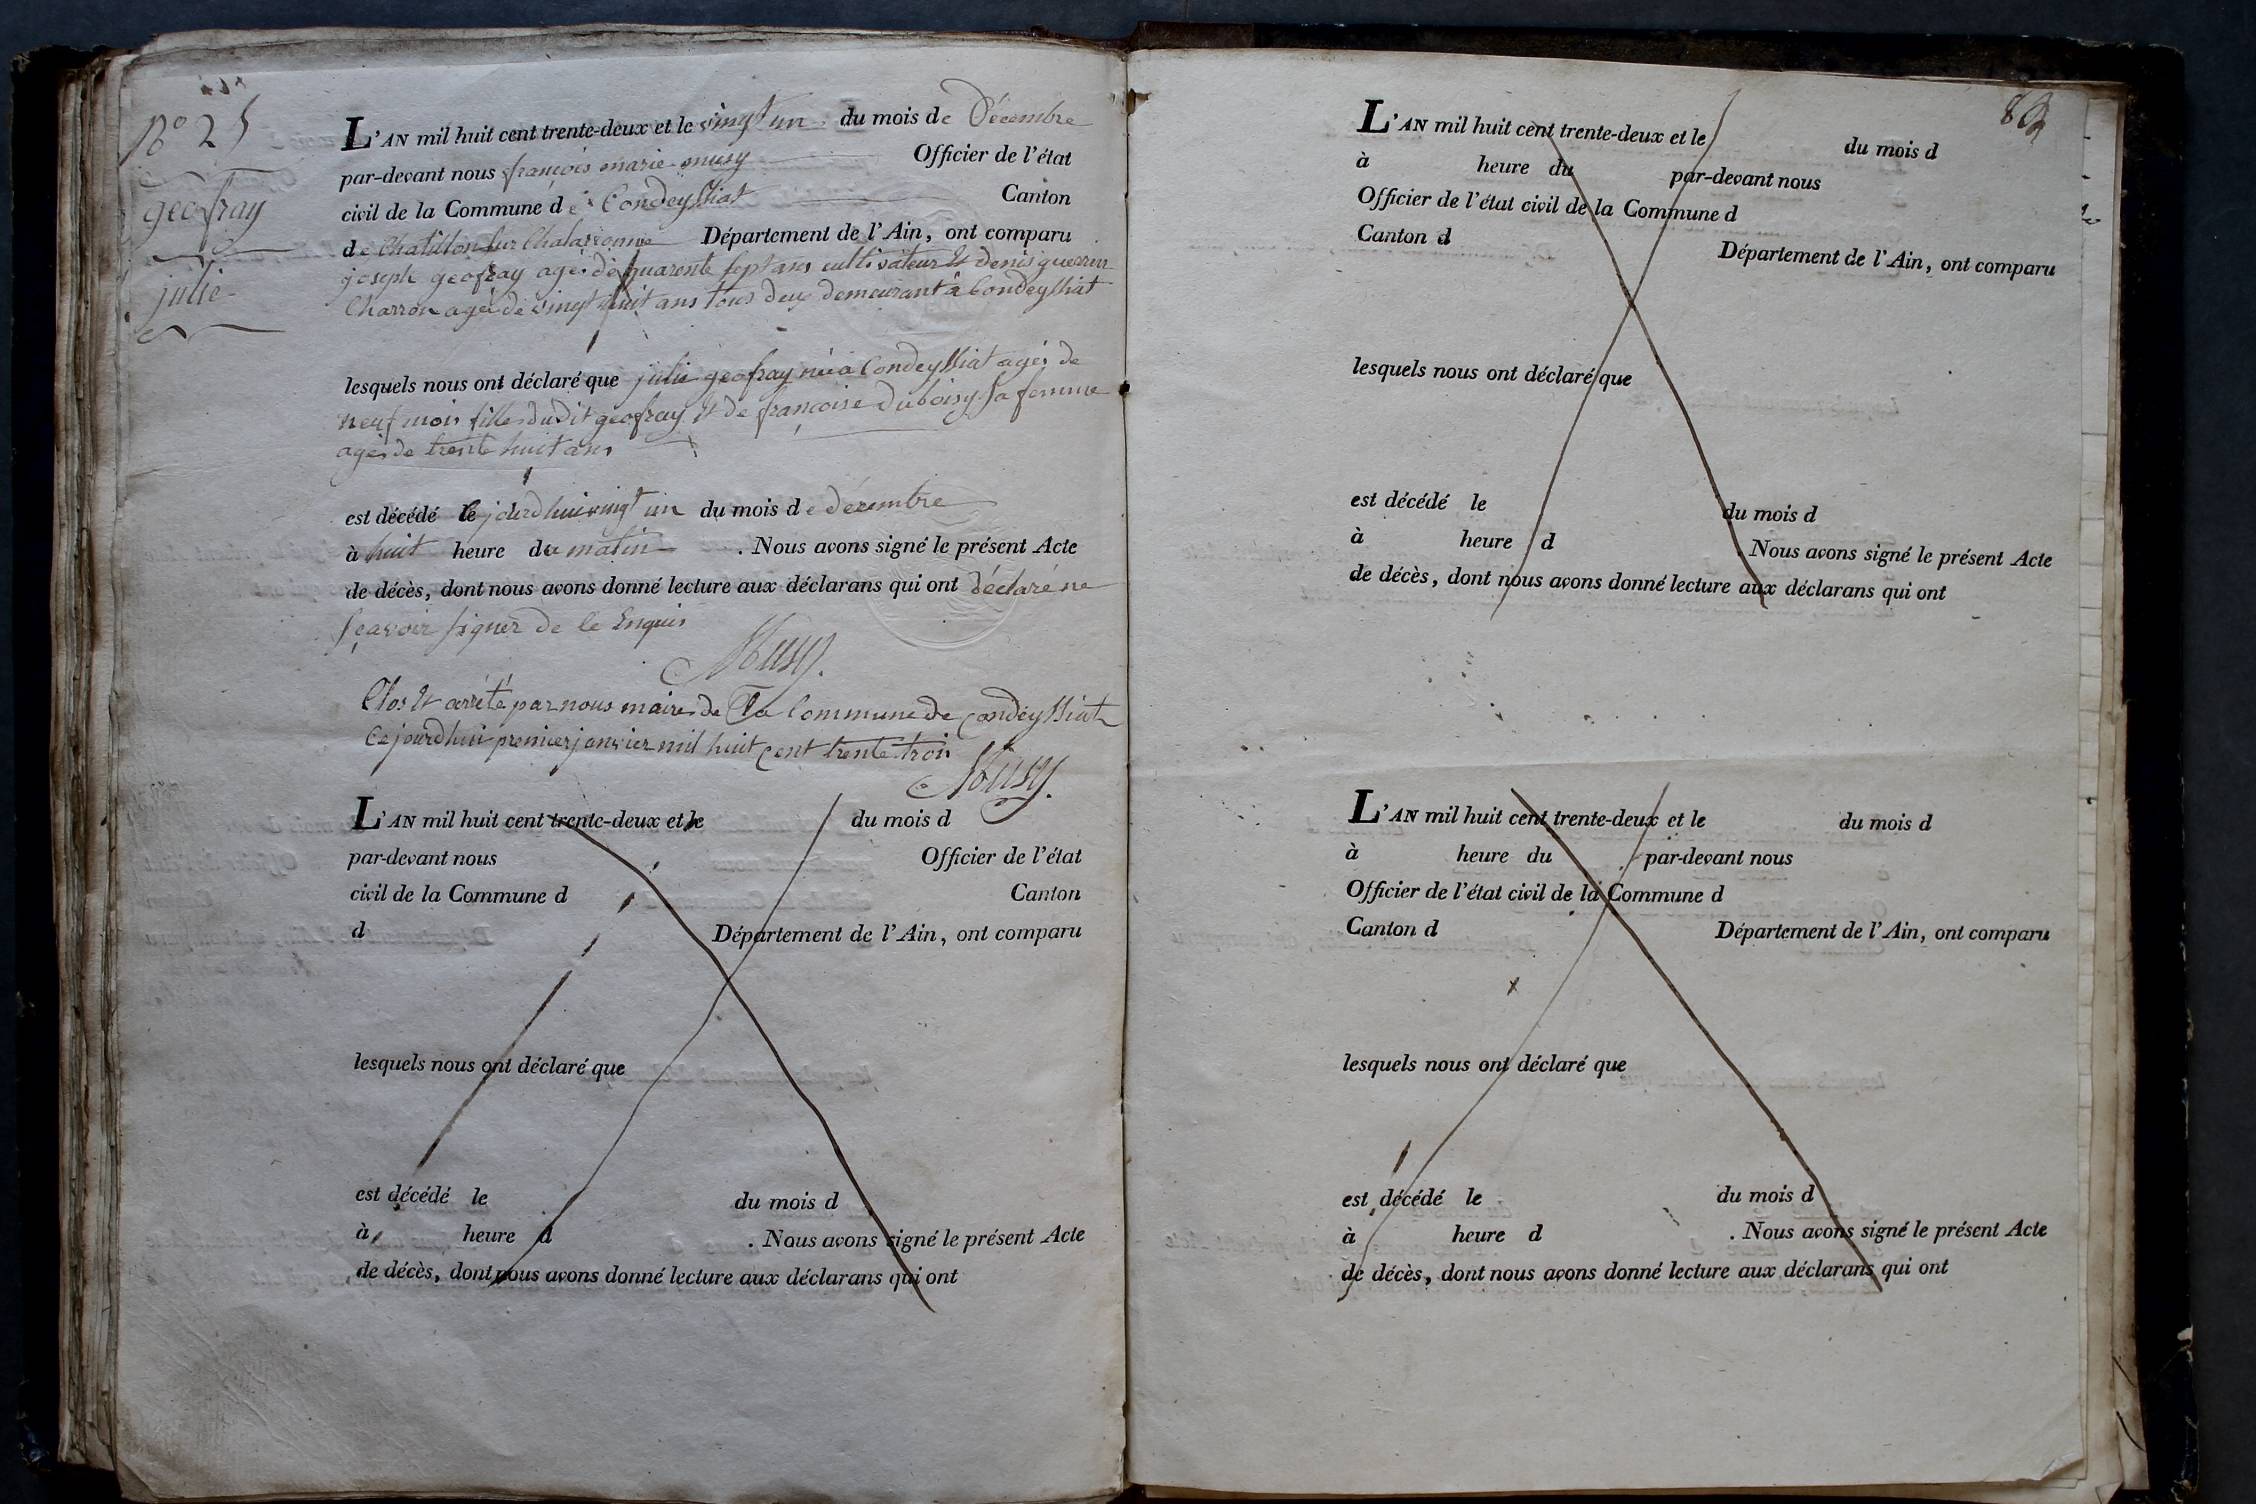 N° 25
geofray
julie
L'AN mil huit cent trente-deux et le vingt un du mois de Décembre
par-devant nous françois marie musy Officier de l'état
civil de la Commune de Condeyssiat Canton
de Chatillon sur Chalaronne Département de l'Ain, ont comparu
joseph geofray agé de quarente sept ans cultivateur Et denis guerrin
Charron agé de vingt huit ans tous deux demeurant à Condeyssiat
lesquels nous ont déclaré que julie geofray née à Condeyssiat agée de
neuf mois fille dudit geofray et de françoise duboisy sa femme
agée de trente huit ans
est décédé le jourdhui vingt un du mois de décembre
à huit heure du matin . Nous avons signé le présent Acte
de décès, dont nous avons donné lecture aux déclarans qui ont déclaré ne
sçavoir signer de ce Enquis
Musy.
Clos Et arrêté par nous maire de La Commune de Condeyssiat
Cejourdhui premier janvier mil huit cent trente trois
Musy.
L'AN mil huit cent trente-deux et le du mois d
par-devant nous Officier de l'état
civil de la Commune d Canton
d Département de l'Ain, ont comparu
lesquels nous ont déclaré que
est décédé le du mois d
à heure d . Nous avons signé le présent Acte
de décès, dont nous avons donné lecture aux déclarans qui ont
L'AN mil huit cent trente-deux et le du mois d
à heure du par-devant nous
Officier de l'état civil de la Commune d
Canton d Département de l'Ain, ont comparu
lesquels nous ont déclaré que
est décédé le du mois d
à heure d . Nous avons signé le présent Acte
de décès, dont nous avons donné lecture aux déclarans qui ont
L'AN mil huit cent trente-deux et le du mois d
à heure du par-devant nous
Officier de l'état civil de la Commune d
Canton d Département de l'Ain, ont comparu
lesquels nous ont déclaré que
est décédé le du mois d
à heure d . Nous avons signé le présent Acte
de décès, dont nous avons donné lecture aux déclarans qui ont